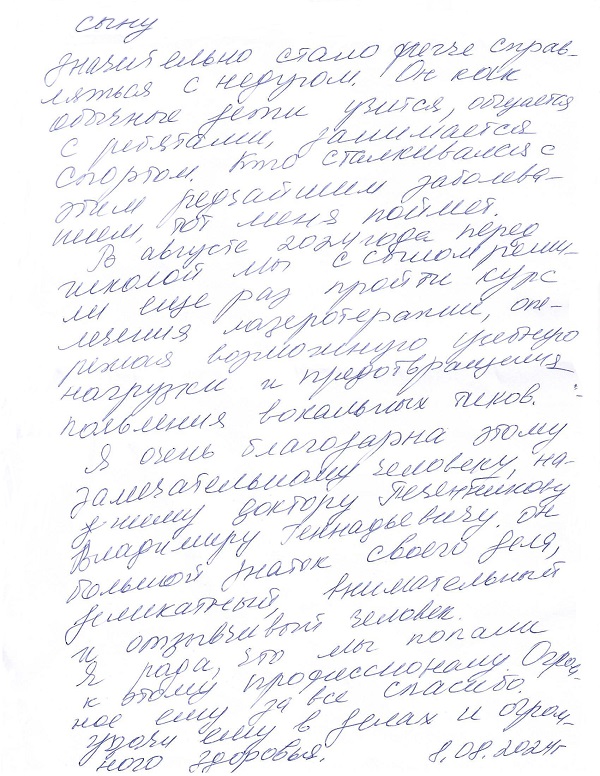 сыну
значительно стало легче справ-
ляться с недугом. Он как
обычные дети учится, общается
с ребятами, занимается
спортом. Кто сталкивался с
этим редчайшим заболева-
нием, тот меня поймет.
В августе 2024 года перед
школой мы с сыном реши-
ли еще раз пройти курс
лечения лазеротерапии, опе-
режая возможную учебную
нагрузки и предотвращения
появления вокальных тиков.
Я очень благодарна этому
замечательному человеку, на-
шему доктору Печенникову
Владимиру Геннадьевичу. Он
большой знаток своего дела,
деликатный, внимательный
и отзывчивый человек.
Я рада, что мы попали
к этому профессионалу. Огром-
ное ему за все спасибо.
Удачи ему в делах и огром-
ного здоровья. 8.08.2024г